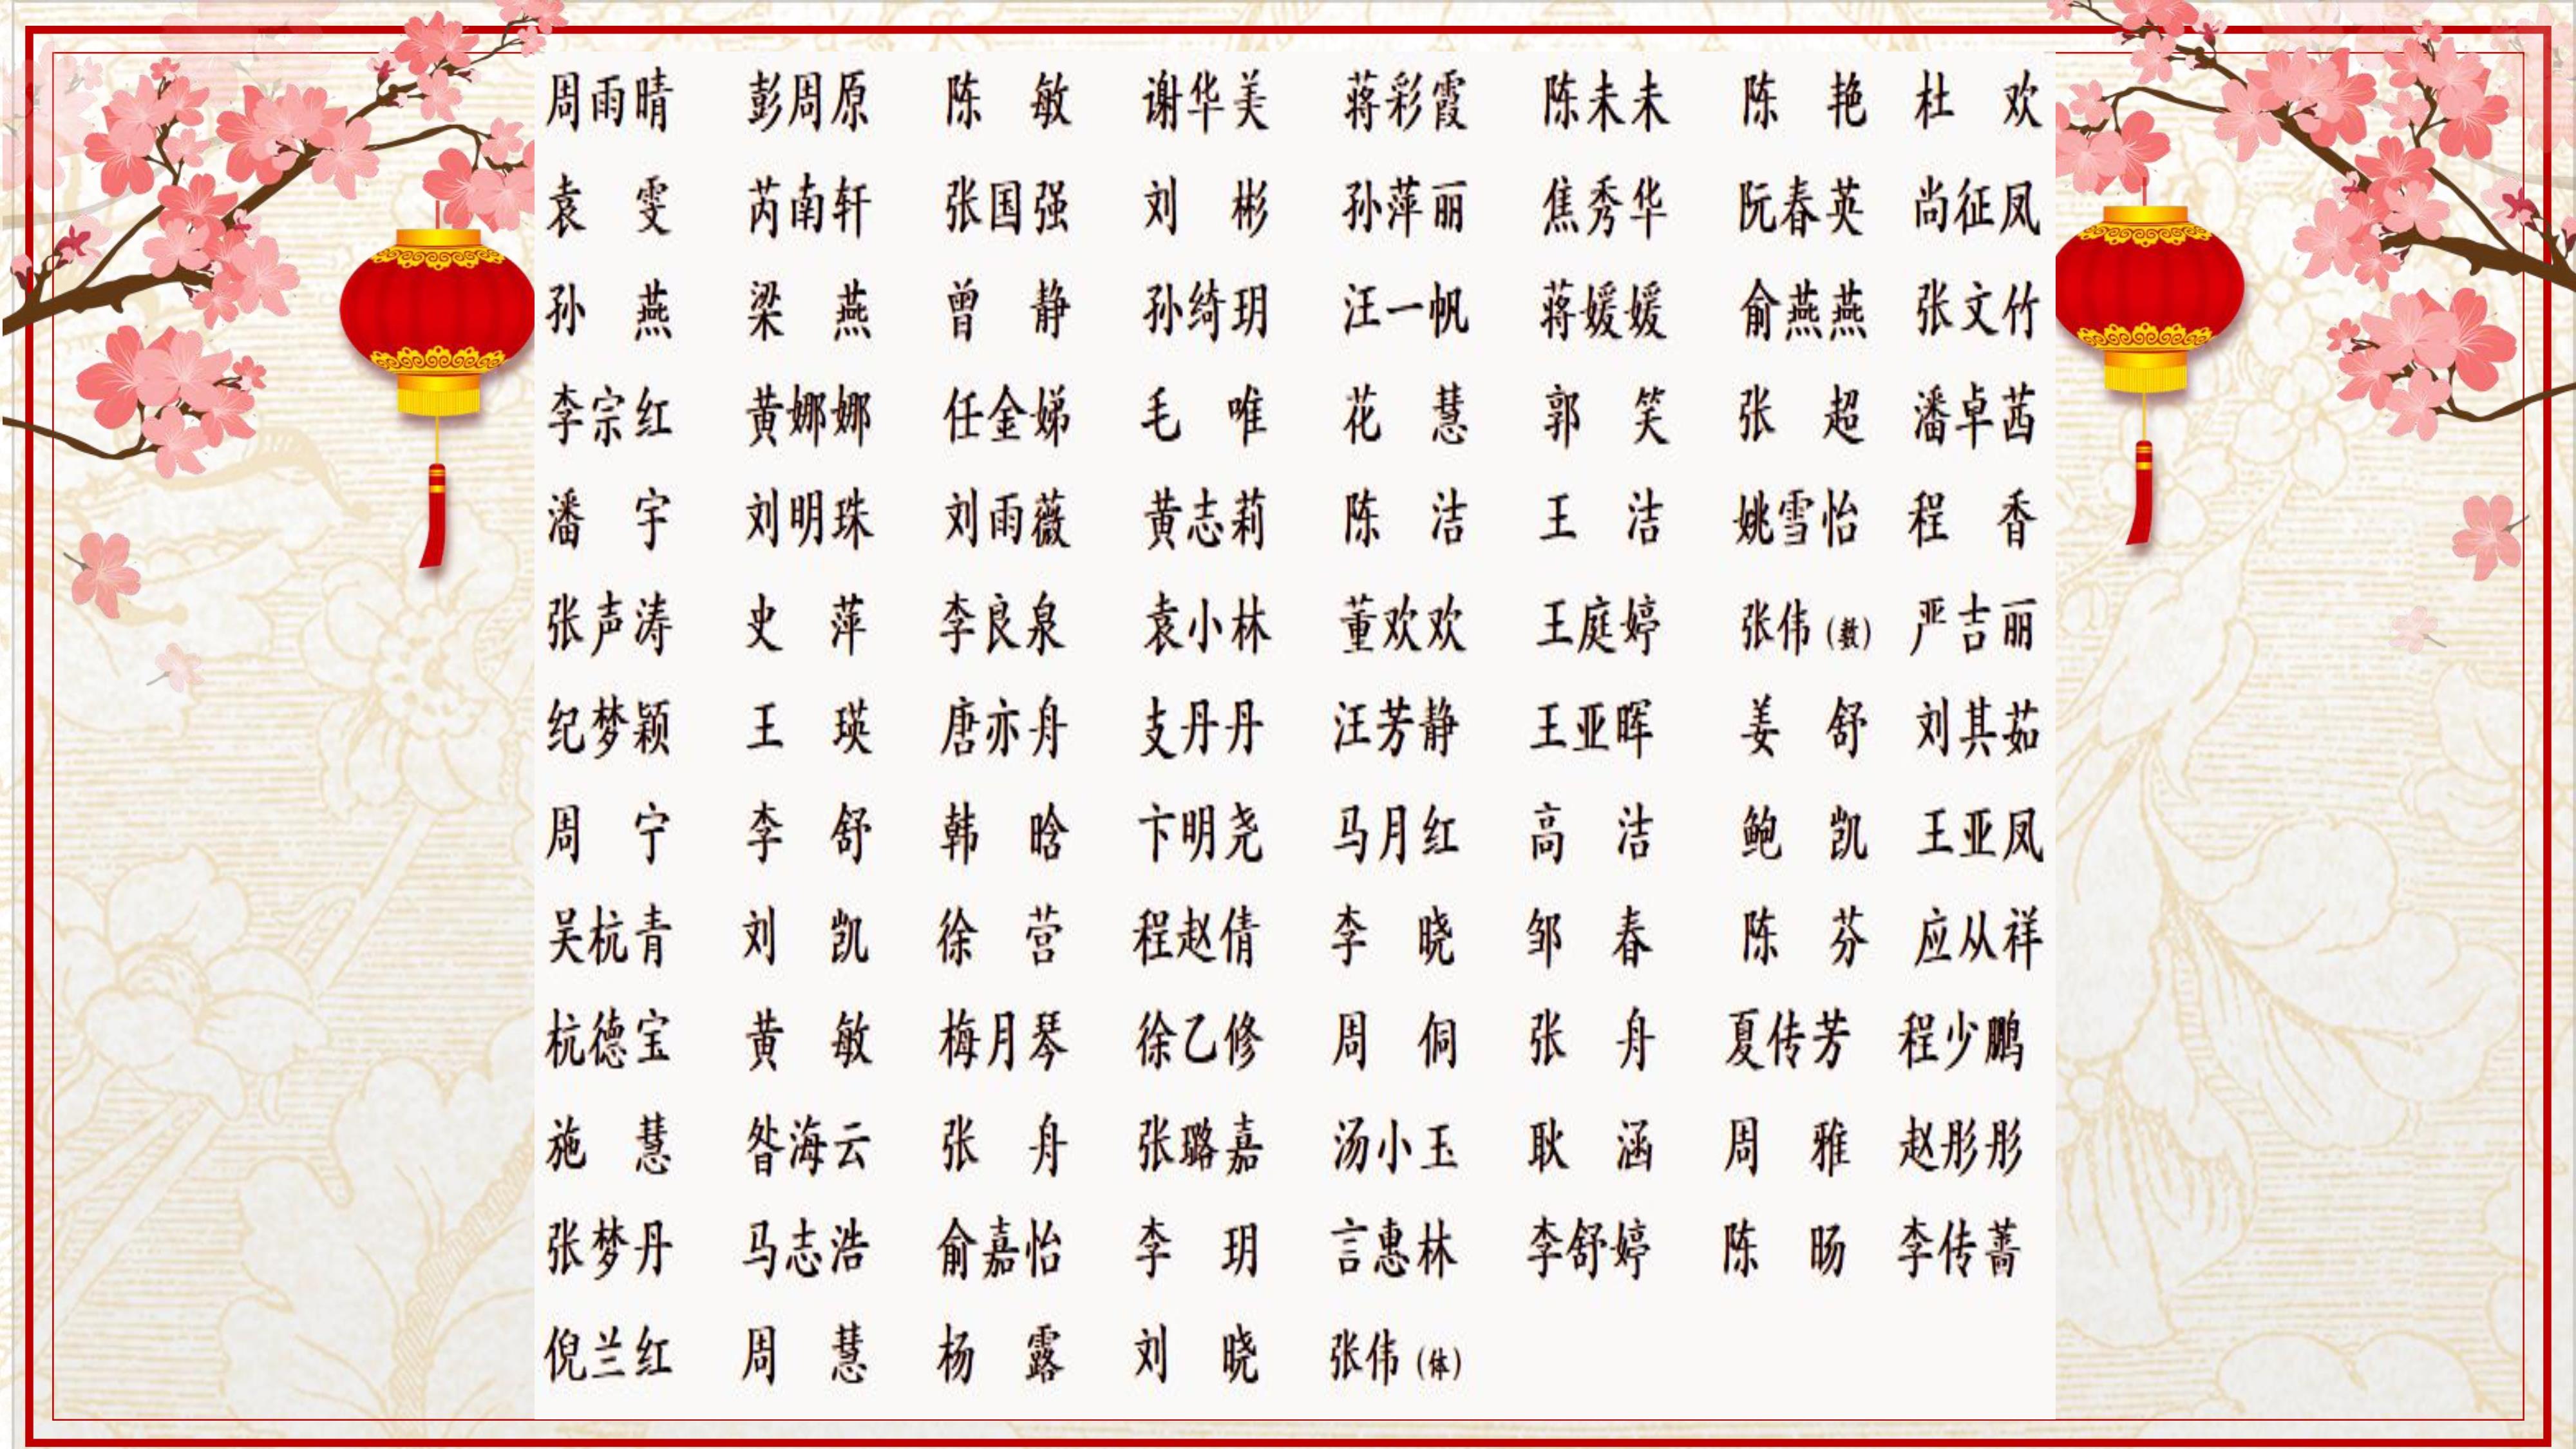 周雨晴 彭周原 陈 敏 谢华美 蒋彩霞 陈未未 陈 艳 杜 欢
袁 雯 芮南轩 张国强 刘 彬 孙萍丽 焦秀华 阮春英 尚征凤
孙 燕 梁 燕 曾 静 孙绮玥 汪一帆 蒋媛媛 俞燕燕 张文竹
李宗红 黄娜娜 任金娣 毛 唯 花 慧 郭 笑 张 超 潘卓茜
潘 宇 刘明珠 刘雨薇 黄志莉 陈 洁 王 洁 姚雪怡 程 香
张声涛 史 萍 李良泉 袁小林 董欢欢 王庭婷 张伟(数) 严吉丽
纪梦颖 王 瑛 唐亦舟 支丹丹 汪芳静 王亚晖 姜 舒 刘其茹
周 宁 李 舒 韩 晗 卞明尧 马月红 高 洁 鲍 凯 王亚凤
吴杭青 刘 凯 徐 营 程赵倩 李 晓 邹 春 陈 芬 应从祥
杭德宝 黄 敏 梅月琴 徐乙修 周 侗 张 舟 夏传芳 程少鹏
施 慧 昝海云 张 舟 张璐嘉 汤小玉 耿 涵 周 雅 赵彤彤
张梦丹 马志浩 俞嘉怡 李 玥 言惠林 李舒婷 陈 旸 李传蔷
倪兰红 周 慧 杨 露 刘 晓 张伟(体)